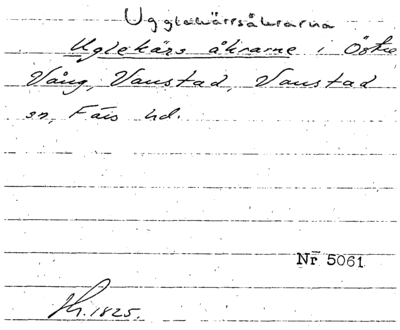 Ugglekärrsåkrarna
Uglekärs åkrarne i Östre
Vång, Vanstad, Vanstad
sn, Färs hd.
Nr 5061
1825.